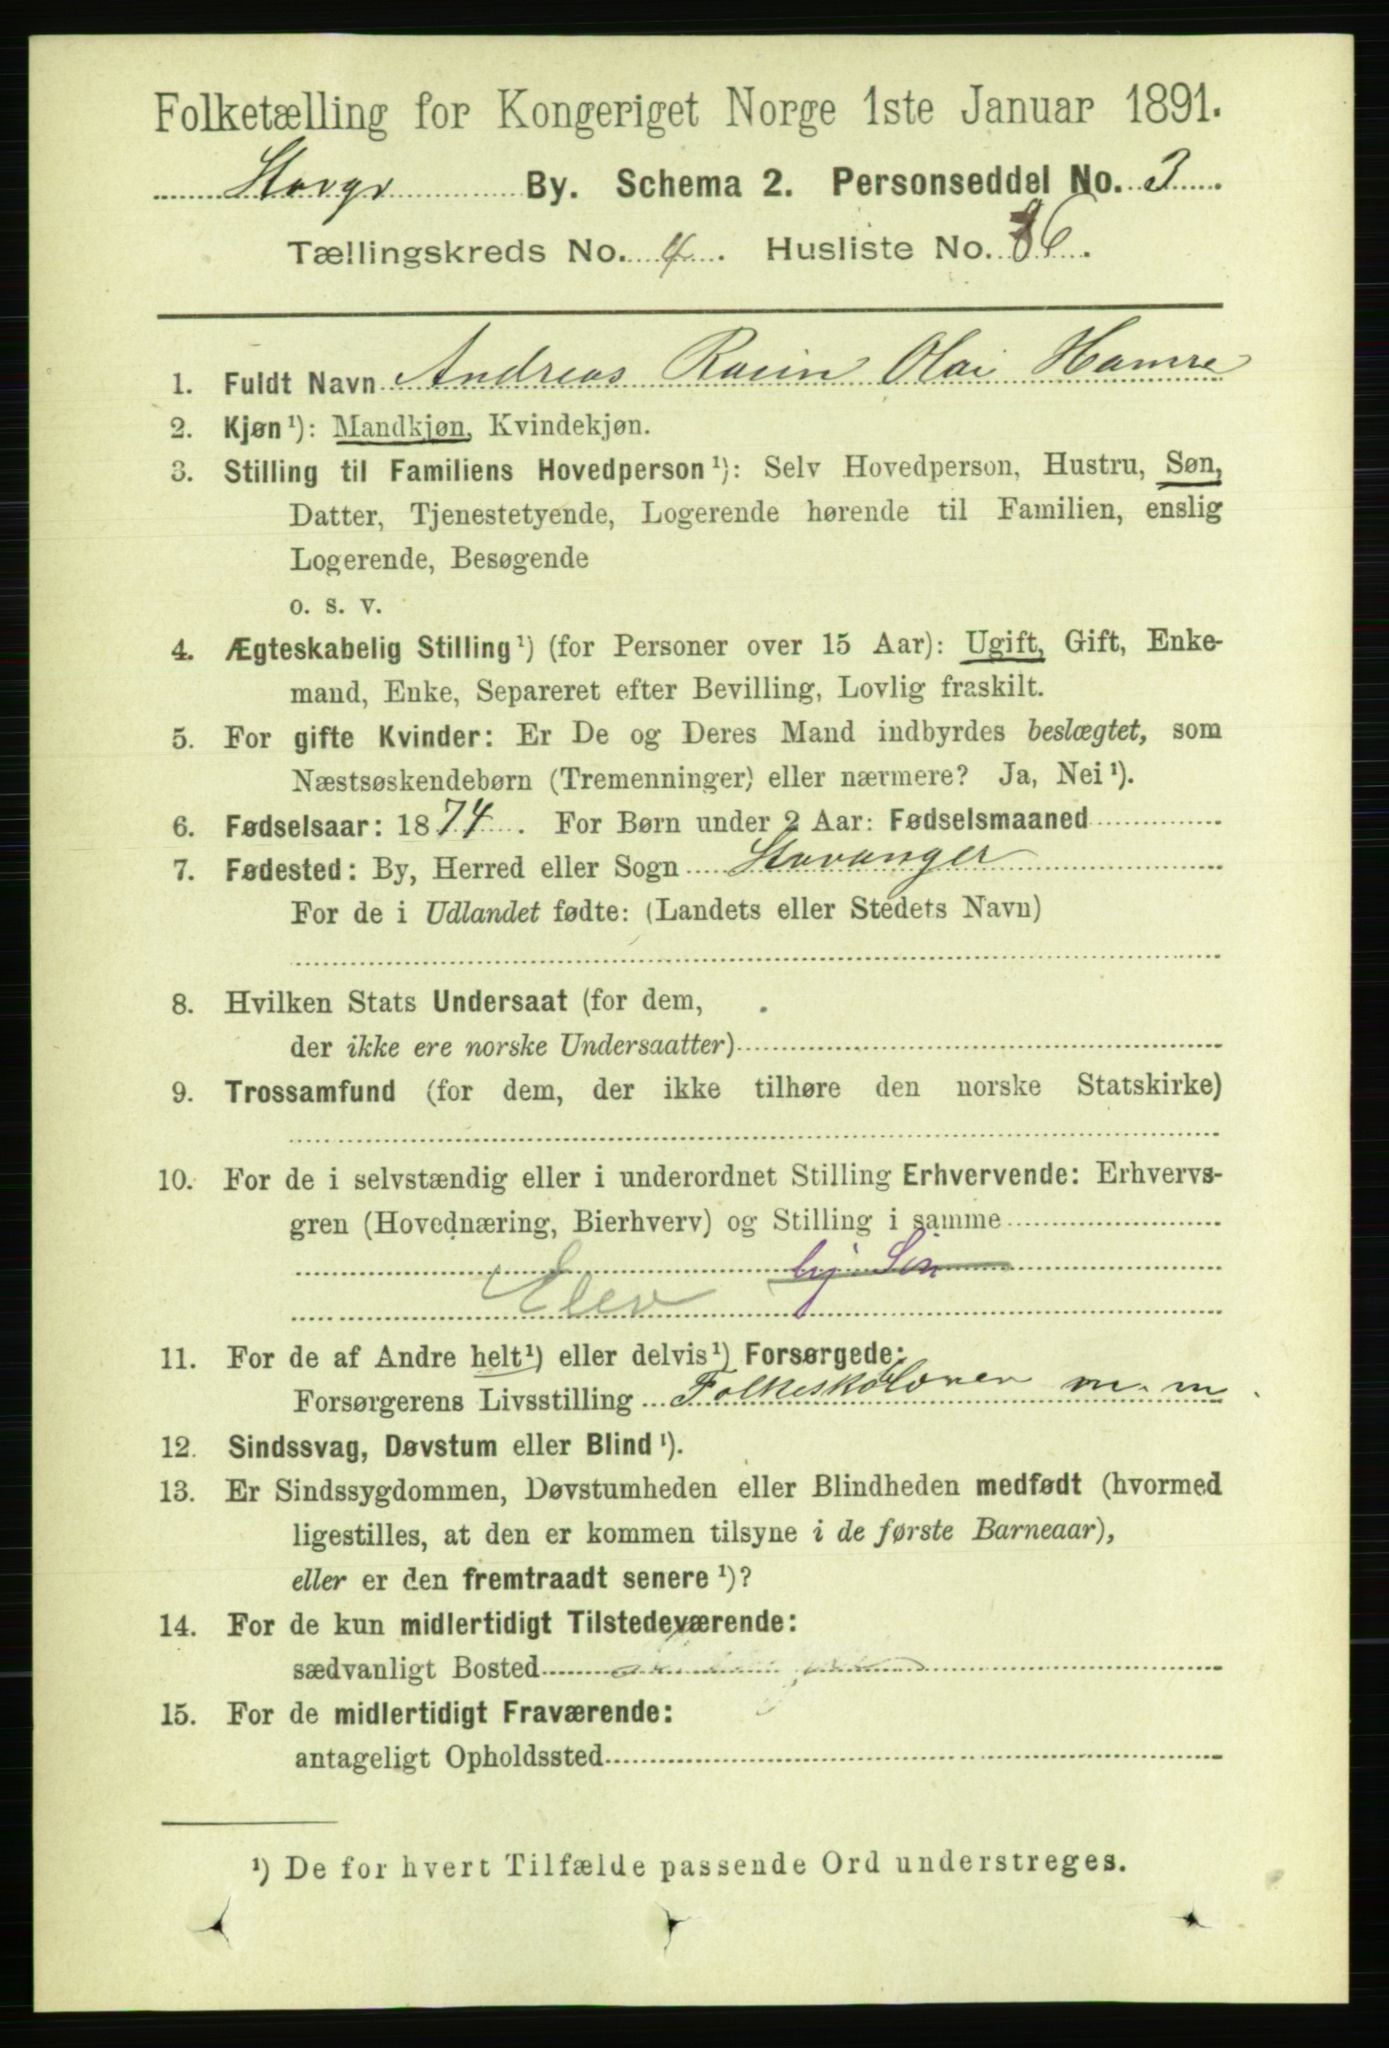 Folketælling for Kongeriget Norge 1ste Januar 1891.
Stavgr By. Schema 2. Personseddel No. 3
Tællingskreds No. 4. Husliste No. 36.
1. Fuldt Navn Andreas Olai Hamre
2. Kjøn¹): Mandkjøn, Kvindekjøn.
3. Stilling til Familiens Hovedperson¹): Selv Hovedperson, Hustru, Søn,
Datter, Tjenestetyende, Logerende hørende til Familien, enslig
Logerende, Besøgende
o. s. v.
4. Ægteskabelig Stilling¹) (for Personer over 15 Aar): Ugift, Gift, Enke-
mand, Enke, Separeret efter Bevilling, Lovlig fraskilt.
5. For gifte Kvinder: Er De og Deres Mand indbyrdes beslægtet, som
Næstsøskendebørn (Tremenninger) eller nærmere? Ja, Nei¹).
6. Fødselsaar: 1874. For Børn under 2 Aar: Fødselsmaaned
7. Fødested: By, Herred eller Sogn Stavanger
For de i Udlandet fødte: (Landets eller Stedets Navn)
8. Hvilken Stats Undersaat (for dem,
der ikke ere norske Undersaatter)
9. Trossamfund (for dem, der ikke tilhøre den norske Statskirke)
10. For de i selvstændig eller i underordnet Stilling Erhvervende: Erhvervs-
gren (Hovednæring, Bierhverv) og Stilling i samme
Elev
11. For de af Andre helt¹) eller delvis¹) Forsørgede:
Forsørgerens Livsstilling Folkeskolelærer m. m
12. Sindssvag, Døvstum eller Blind¹).
13. Er Sindssygdommen, Døvstumheden eller Blindheden medfødt (hvormed
ligestilles, at den er kommen tilsyne i de første Barneaar),
eller er den fremtraadt senere¹)?
14. For de kun midlertidigt Tilstedeværende:
sædvanligt Bosted
15. For de midlertidigt Fraværende:
antageligt Opholdssted
¹) De for hvert Tilfælde passende Ord understreges.